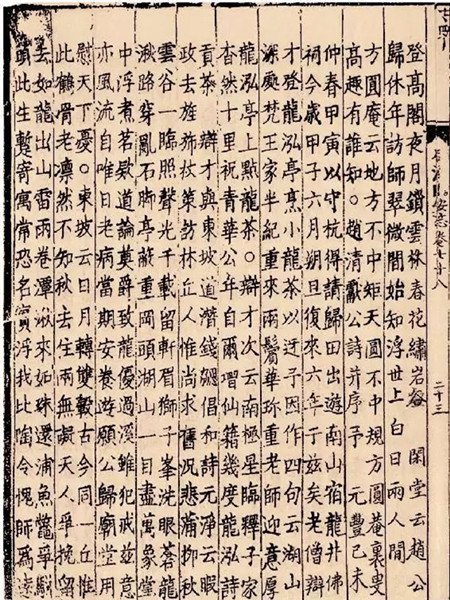 二十三
登高閣夜月鎖雲林春花繡岩谿 閑堂云趙公
歸休年訪師翠微間始知浮世上白日兩人閒
方圓庵云地方不中矩天圓不中規方圓庵裏叟
高趣有誰知。趙清獻公詩并序予 元豐己未
仲春甲寅以守杭得請歸田出遊南山宿龍井佛
祠今歲甲子六月朔旦復來六年于茲矣老僧辯
才登龍泓亭烹小龍茶以迓予因作四句云湖山
深處梵王家半紀重來兩鬢華珍重老師迎意厚
龍泓亭上點龍茶。辯才次云南極星臨釋子家
杳然十里祝青華公年自爾增仙籍幾度龍泓詩
貢茶 辯才與東坡道潛錢勰倡和詩元淨云暇
政去旌旆杖策訪林丘人惟尚求舊況悲蒲柳秋
雲谷一臨照聲光千載留軒眉獅子峯洗眼蒼龍
湫路穿亂石脚亭蔽重岡頭湖山一目盡萬象堂
中浮煮茗欵道論奠爵致龍優過溪雖犯戒茲意
亦風流自惟日老病當期安養遊願公歸廟堂用
慰天下憂。東坡云日月轉雙轂古今同一丘惟
此鶴骨老凛然不知秋去住兩無礙天人爭挽留
去如龍出山雷雨卷潭湫來如珠還浦魚鼈爭駢
頭此生暫寄寓常恐名實浮我比陶令愧師爲遠